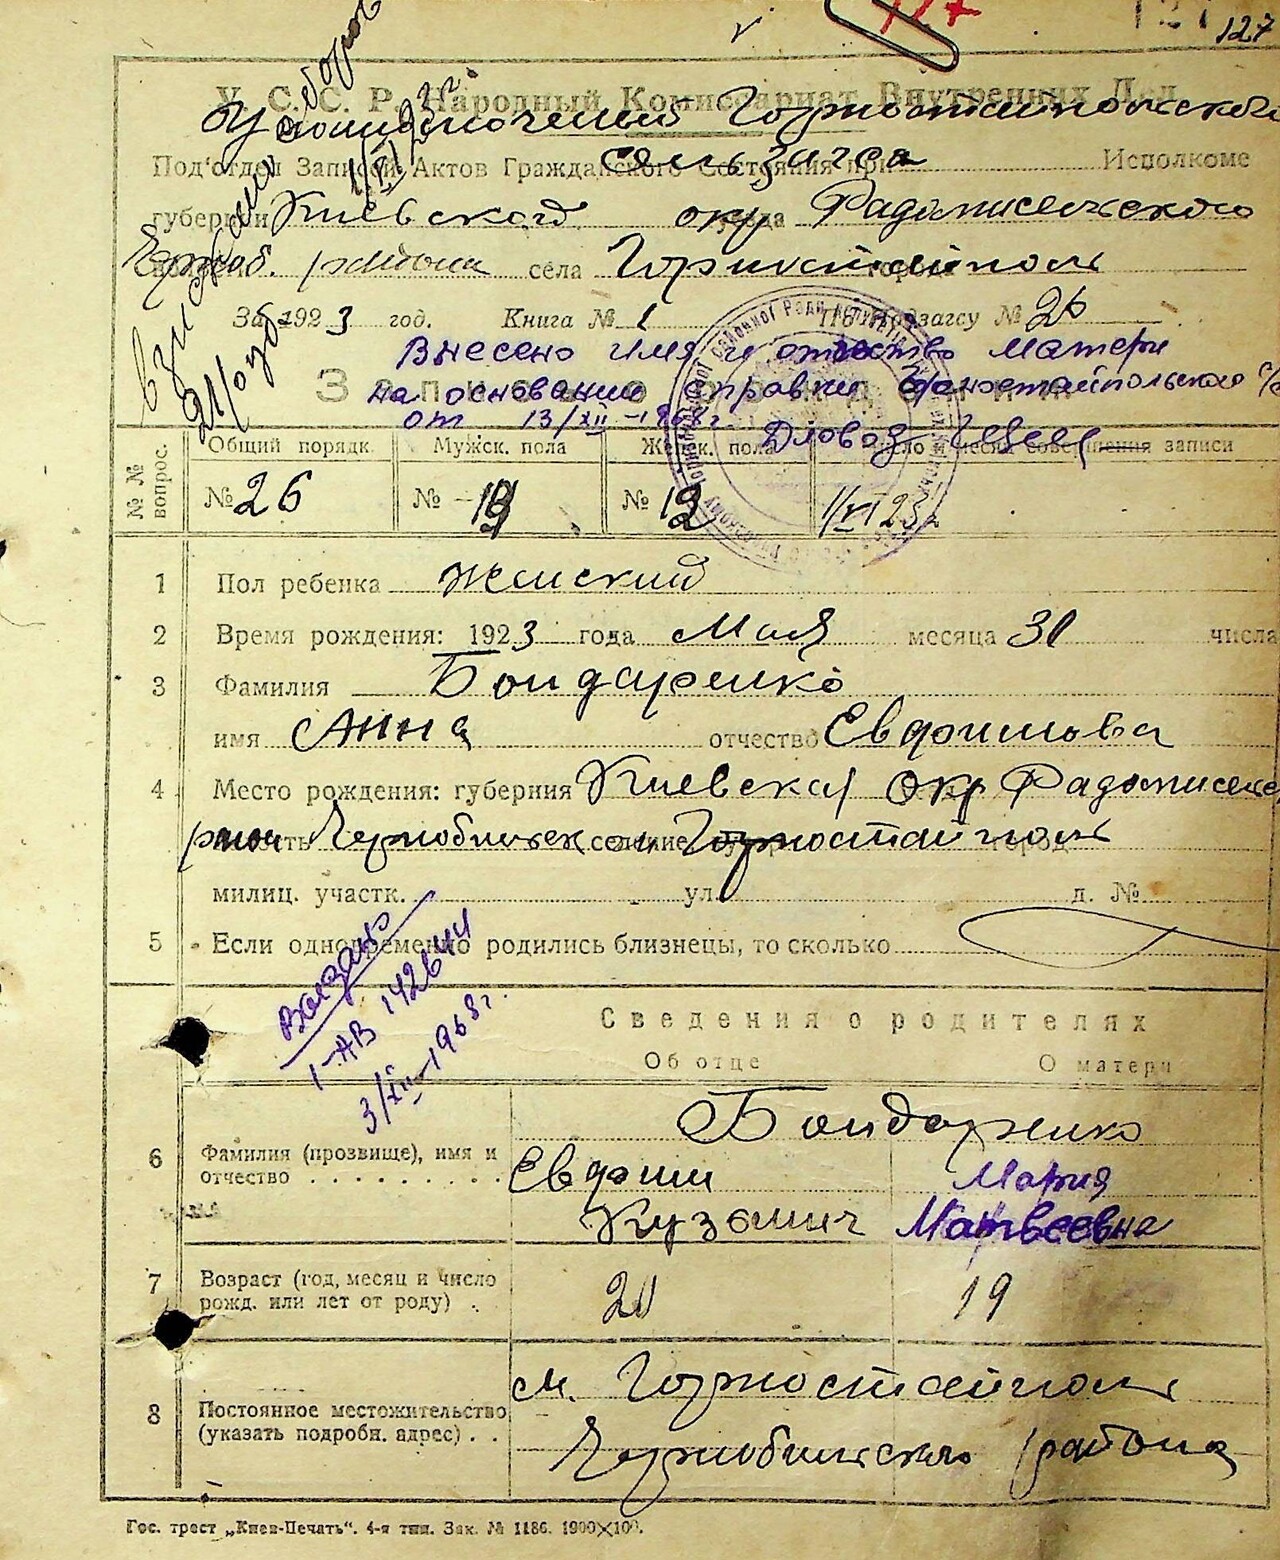 127
127
У. С. С. Р. Народный Комиссариат Внутренних Дел
Уполномоченный Горностайпольского
Под'отдел Записей Актов Гражданского Состояния при сельзагса Исполкоме
губернии Киевского окр уезда Радомисельского
Черноб. района села Горностайполь
За 1923 год. Книга № 1 По подзагсу № 26
Внесено имя и отчество матери
на основании справки Горностайпольского с/с
от 13/XII-1968 г.
Запись о рождении
взыскано
№ № вопрос.
Общий порядк.
Мужск. пола
Женск. пола
Число и месяц совершения записи
№ 26
№
№ 12
1/VI 23 г.
1 Пол ребенка Женский
2 Время рождения: 1923 года Мая месяца 30 числа
3 Фамилия Бондаренко
имя Анна отчество Евдокимова
4 Место рождения: губерния Киевская окр Радомисельс
район Чернобильск селение Горностайполь
милиц. участк. ул. д. №
5 Если одновременно родились близнецы, то сколько
Выдано
I-АВ 142644
3/XII-1968 г.
Сведения о родителях
Об отце О матери
Бондаренко
6 Фамилия (прозвище), имя и отчество
Евдоким Мария
Кузьмич Матвеевна
7 Возраст (год, месяц и число рожд. или лет от роду)
20 19
8 Постоянное местожительство (указать подробн. адрес)
м. Горностайполь
Чернобильского района
Гос. трест „Киев-Печать". 4-я тип. Зак. № 1186. 1900×100.